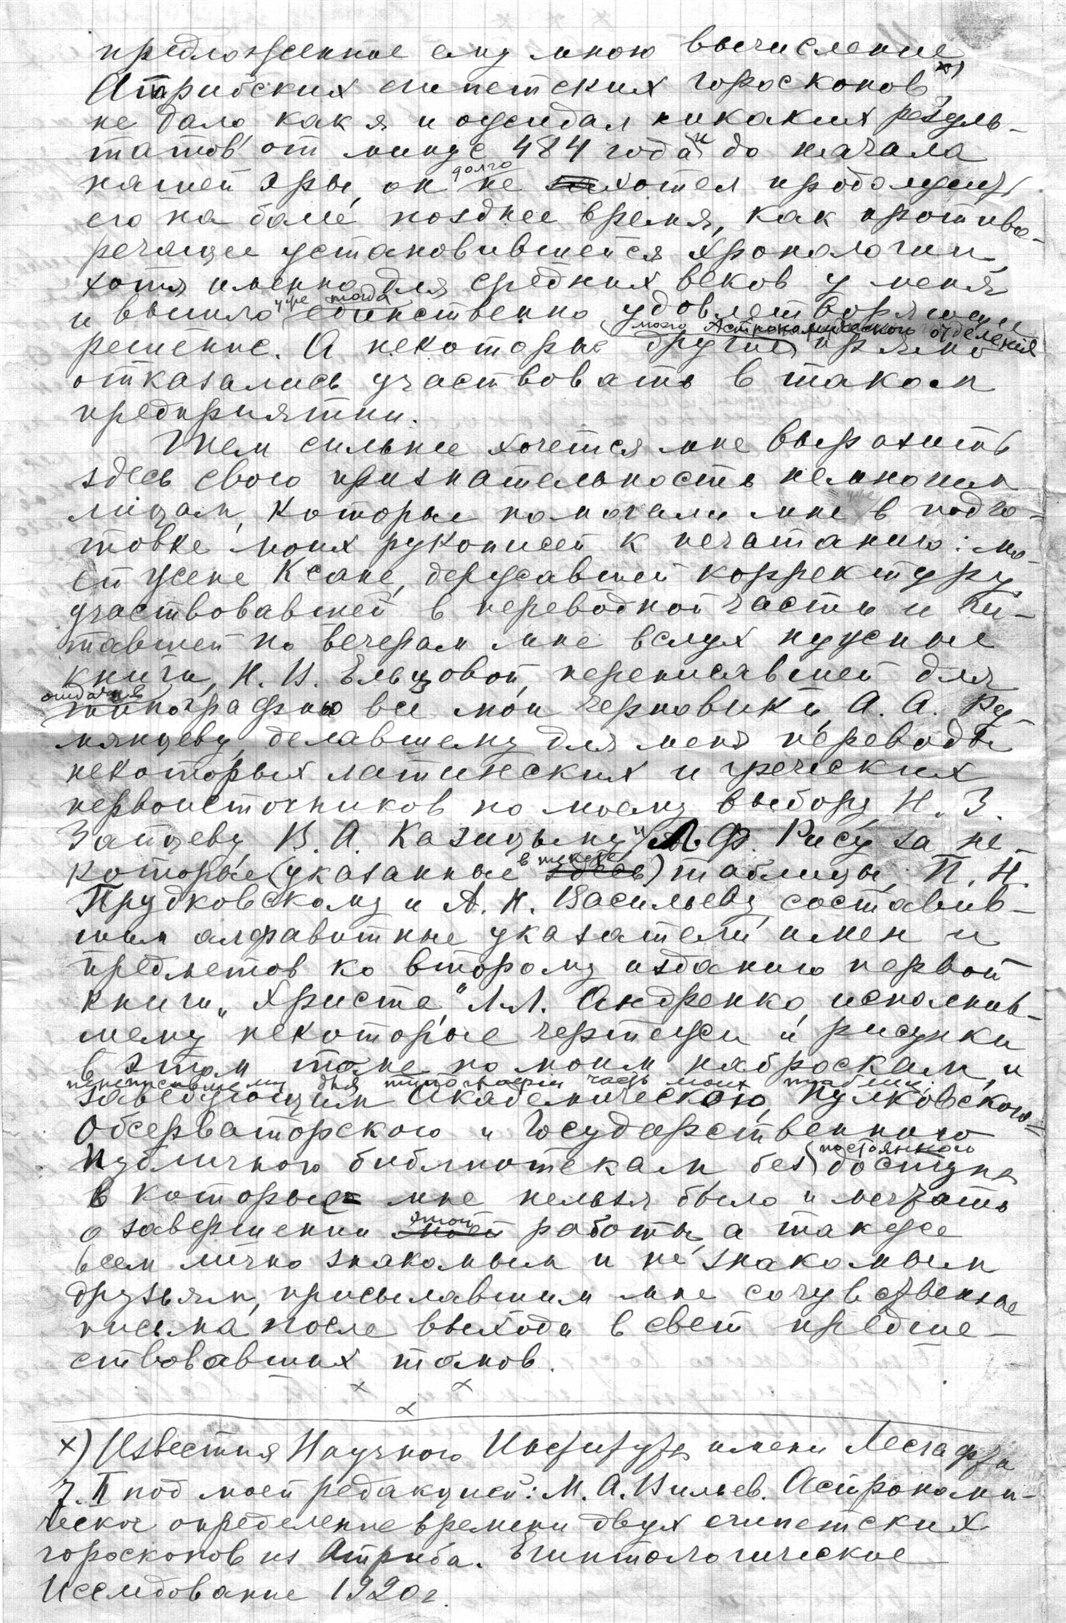 предложенное ему мною вычисление
Атрибских египетских гороскопов х)
не дало, как я и ожидал никаких резуль-
татов от минус 484 года и до начала
долго
нашей эры, он не хотел продолжать
его на более позднее время, как противо-
речащее установившейся хронологии,
хотя именно для средних веков у меня
уже тогда
и вышло единственно удовлетворяющее
моего Астрономического отделения
решение. А некоторые другие прямо
отказались участвовать в таком
предприятии.
Тем сильнее хочется мне выразить
здесь свою признательность немногим
лицам, которые помогали мне в подго-
товке моих рукописей к печатанию: мо-
ей жене Ксане, державшей корректуру,
участвовавшей в переводной части и чи-
тавшей по вечерам мне вслух нужные
книги, Н. И. Ельцовой, переписавшей для
типографию все мои черновики, А. А. Ру-
мянцеву, делавшему для меня переводы
некоторых латинских и греческих
первоисточников по моему выбору, Н. З.
Зайцеву, В. А. Казицыну и Л. Ф. Рису за не-
в тексте
которые (указанные здесь) таблицы, П. Н.
Прудковскому и А. Н. Васильеву, составив-
шим алфавитные указатели имен и
предметов ко второму изданию первой
книги „Христа," Л. Л. Андренко, исполнив-
шему некоторые чертежи и рисунки
в этом томе по моим наброскам, и
переписавшему для типографии часть моих таблиц,
заведующим Академическою, Пулковского
Обсерваторского и Государственного
постоянного
Публичного библиотекам без доступа
в которые мне нельзя было и мечтать
этой
о завершении моей работы, а также
всем лично знакомым и не знакомым
друзьям, присылавшим мне сочувственные
письма после выхода в свет предше-
ствовавших томов.
х х
х
х) Известия Научного Института имени Лесгафта
т. II под моей редакцией: М. А. Вильев. Астрономи-
ческое определение времени двух египетских
гороскопов из Атриба. Египтологическое
Исследование 1920 г.